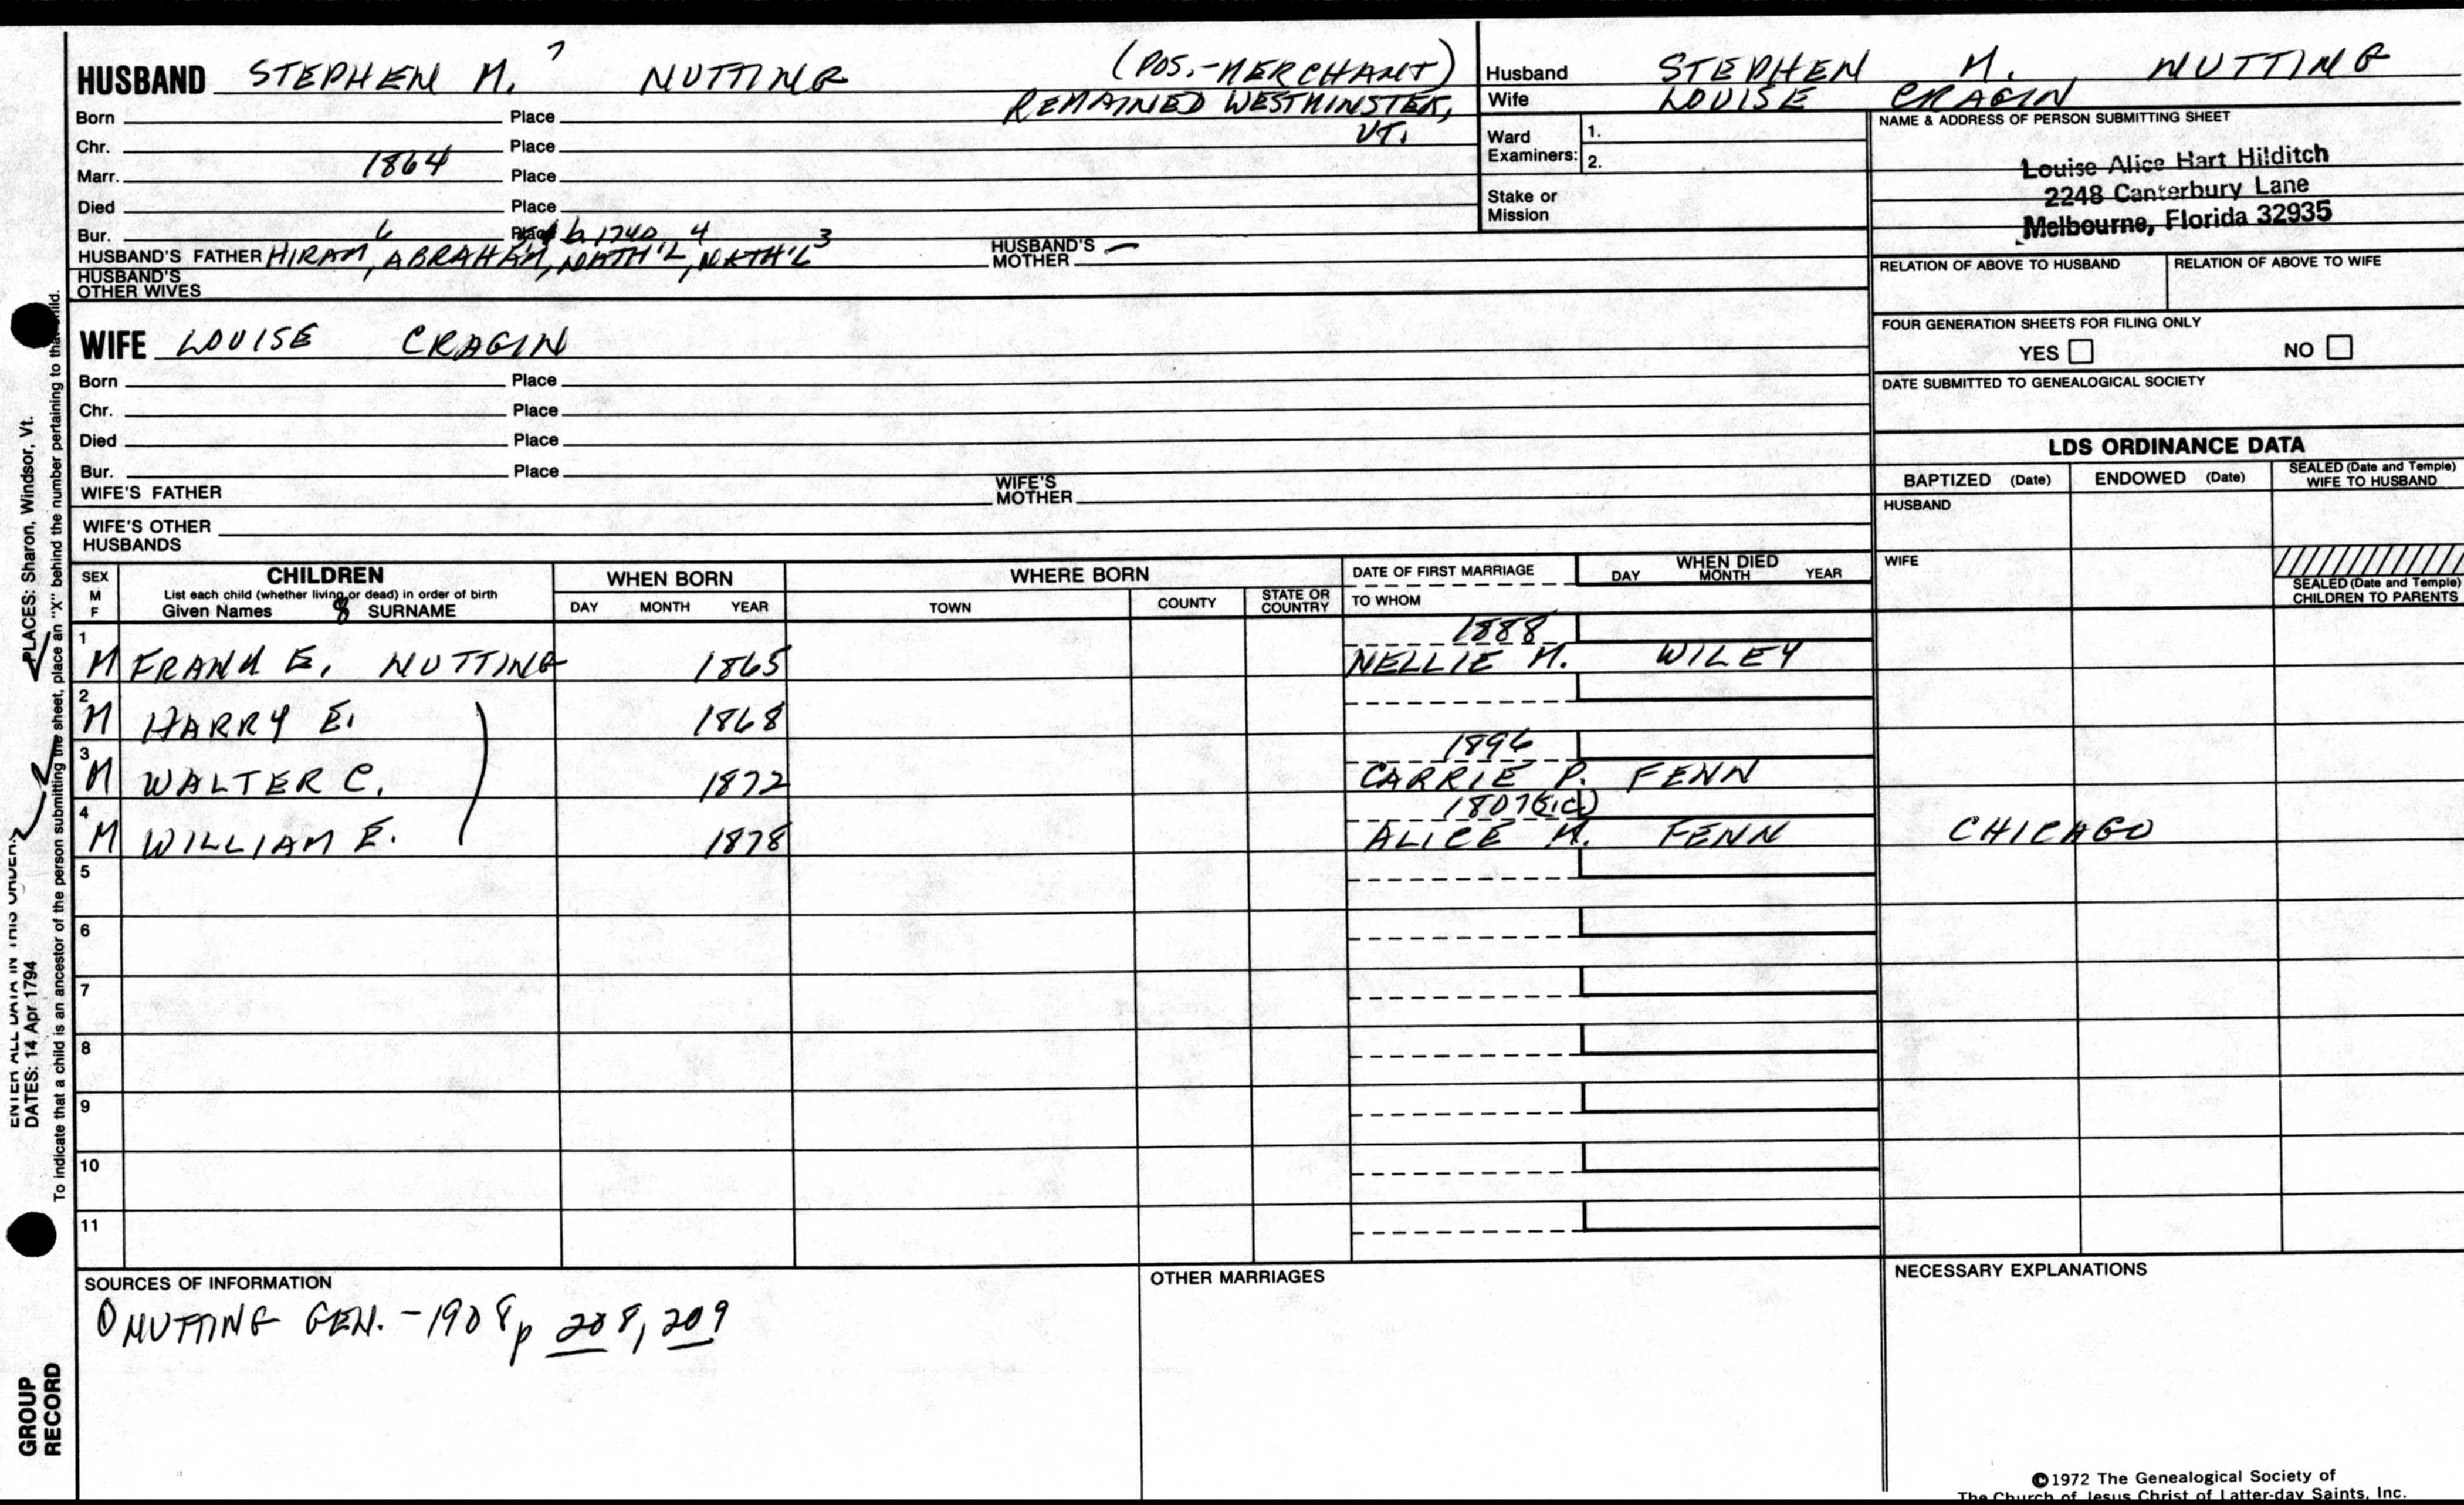 HUSBAND STEPHEN M.7 NUTTING (POS.-MERCHANT)
REMAINED WESTMINSTER,
VT.
Born Place
Chr. Place
Marr. 1864 Place
Died Place
Bur. Place
6 b. 1740 4 3
HUSBAND'S FATHER HIRAM, ABRAHAM, NATH'L, NATH'L HUSBAND'S MOTHER —
HUSBAND'S OTHER WIVES
WIFE LOUISE CRAGIN
Born Place
Chr. Place
Died Place
Bur. Place
WIFE'S FATHER WIFE'S MOTHER
WIFE'S OTHER HUSBANDS
Husband STEPHEN M. NUTTING
Wife LOUISE CRAGIN
Ward Examiners: 1.
2.
Stake or Mission
NAME & ADDRESS OF PERSON SUBMITTING SHEET
Louise Alice Hart Hilditch
2248 Canterbury Lane
Melbourne, Florida 32935
RELATION OF ABOVE TO HUSBAND RELATION OF ABOVE TO WIFE
FOUR GENERATION SHEETS FOR FILING ONLY
YES NO
DATE SUBMITTED TO GENEALOGICAL SOCIETY
LDS ORDINANCE DATA
BAPTIZED (Date) ENDOWED (Date) SEALED (Date and Temple) WIFE TO HUSBAND
HUSBAND
WIFE
SEALED (Date and Temple) CHILDREN TO PARENTS
SEX M F
CHILDREN
List each child (whether living or dead) in order of birth
Given Names & SURNAME
WHEN BORN
DAY MONTH YEAR
WHERE BORN
TOWN COUNTY STATE OR COUNTRY
DATE OF FIRST MARRIAGE
TO WHOM
WHEN DIED
DAY MONTH YEAR
1 1888
M FRANK E. NUTTING 1865 NELLIE M. WILEY
2
M HARRY E. 1868
3 1896
M WALTER C. 1872 CARRIE P. FENN
4 1807(sic)
M WILLIAM E. 1878 ALICE M. FENN CHICAGO
5
6
7
8
9
10
11
SOURCES OF INFORMATION
① NUTTING GEN. -1908, p 208, 209
OTHER MARRIAGES
NECESSARY EXPLANATIONS
©1972 The Genealogical Society of
The Church of Jesus Christ of Latter-day Saints, Inc.
ENTER ALL DATA IN THIS ORDER:
PLACES: Sharon, Windsor, Vt.
DATES: 14 Apr 1794
To indicate that a child is an ancestor of the person submitting the sheet, place an "X" behind the number pertaining to that child.
GROUP
RECORD